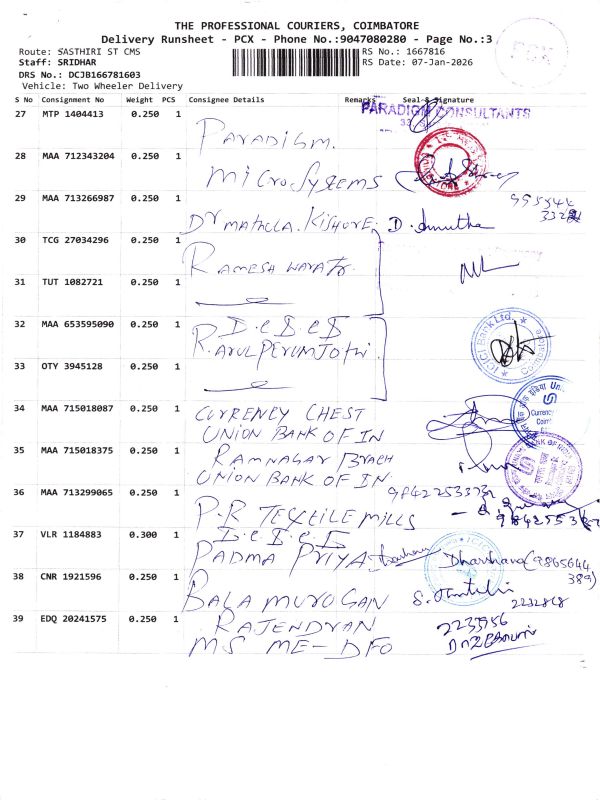 THE PROFESSIONAL COURIERS, COIMBATORE
Delivery Runsheet - PCX - Phone No.:9047080280 - Page No.:3
Route: SASTHIRI ST CMS
RS No.: 1667816
Staff: SRIDHAR
RS Date: 07-Jan-2026
DRS No.: DCJB166781603
Vehicle: Two Wheeler Delivery
PCX
S No Consignment No Weight PCS Consignee Details Remarks Seal & Signature
27 MTP 1404413 0.250 1
PARADIGM CONSULTANTS
PARADIGM.
28 MAA 712343204 0.250 1
MICROSYSTEMS
29 MAA 713266987 0.250 1
DR MATHULA. KISHORE D. Amutha
30 TCG 27034296 0.250 1
RAMESH
31 TUT 1082721 0.250 1
32 MAA 653595090 0.250 1
ICICI Bank Ltd.
R. ARUL PERUMJOTHI.
33 OTY 3945128 0.250 1
34 MAA 715018087 0.250 1
CURRENCY CHEST
UNION BANK OF IN
35 MAA 715018375 0.250 1
RAMNAGAR BRACH
UNION BANK OF IN
36 MAA 713299065 0.250 1
P.R TEXTILE MILLS
37 VLR 1184883 0.300 1
PADMA PRIYA Dharshana (9865644
389)
38 CNR 1921596 0.250 1
BALA MUROGAN
39 EDQ 20241575 0.250 1
RAJENDRAN
MS ME-DFO